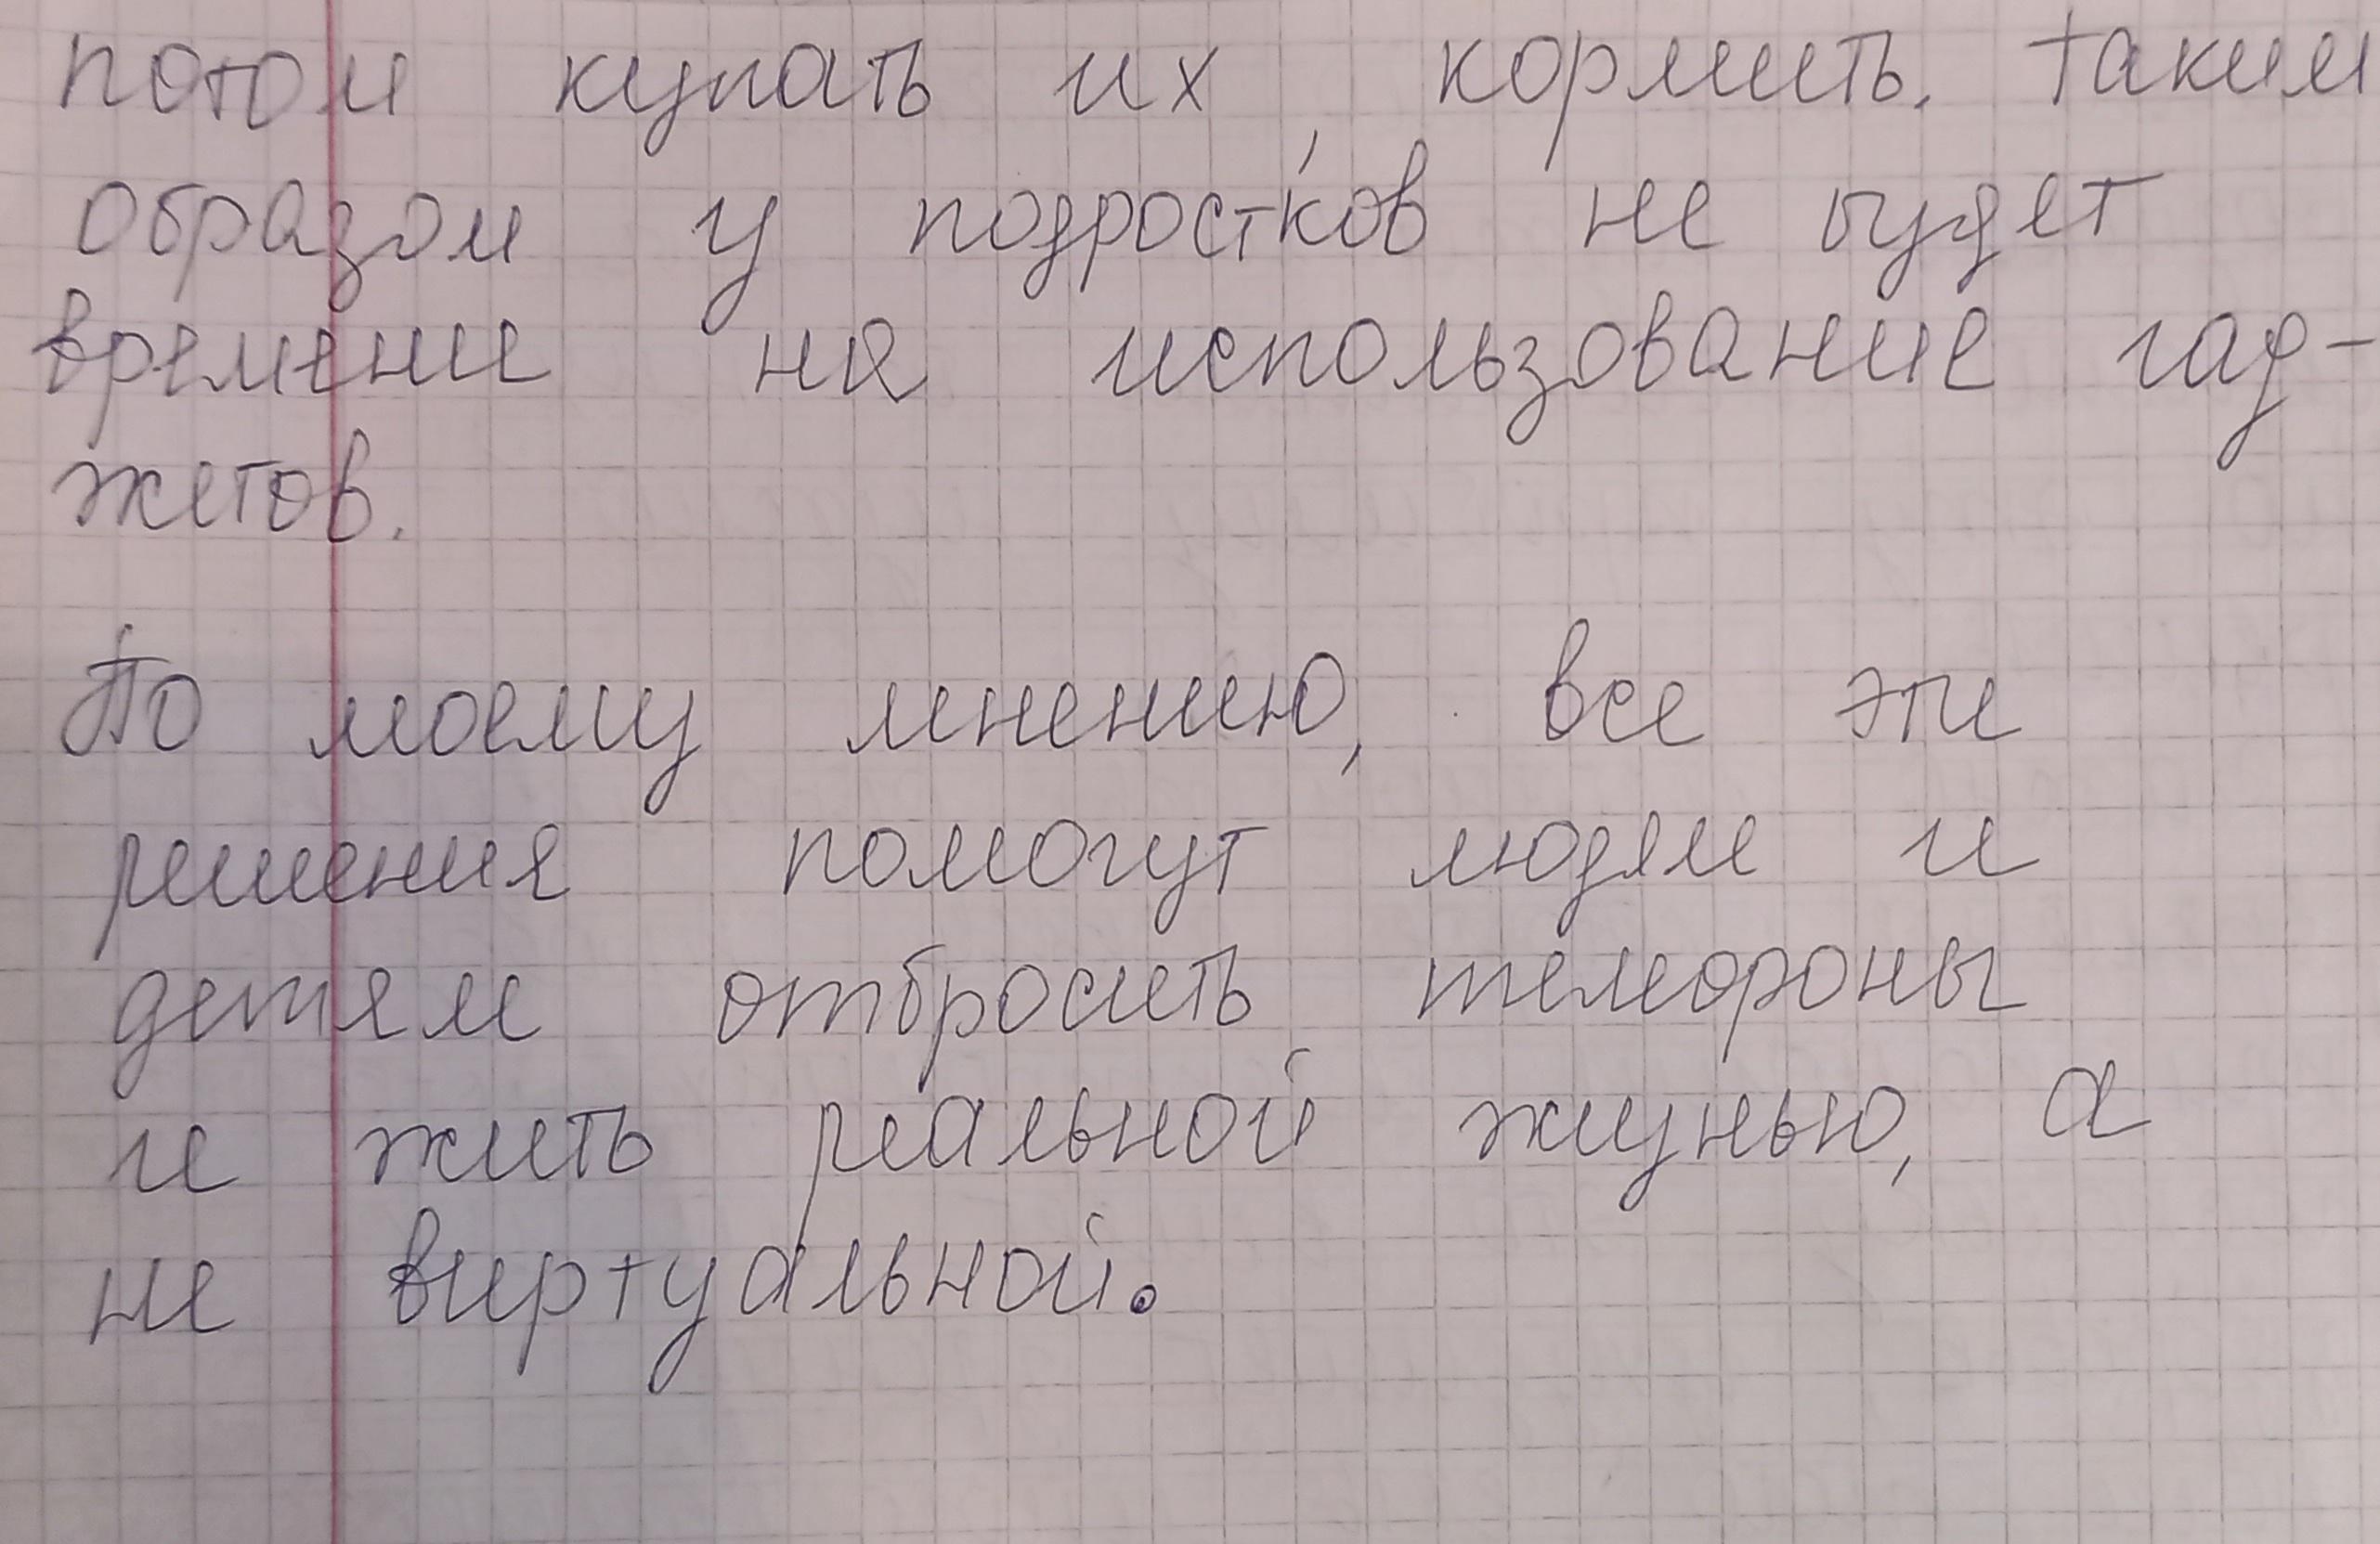 потом купать их, кормить. Таким
образом у подростков не будет
времени на использование гад-
жетов.
По моему мнению, все эти
решения помогут людям и
детям отбросить телефоны
и жить реальной жизнью, а
не виртуальной.